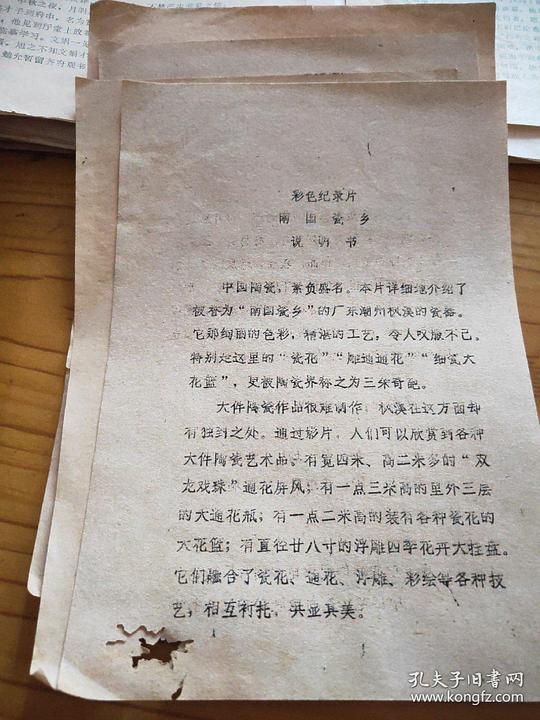 彩色纪录片
南国瓷乡
说明书
中国陶瓷，素负盛名。本片详细地介绍了
被誉为“南国瓷乡”的广东潮州枫溪的瓷器。
它那绚丽的色彩，精湛的工艺，令人叹服不已。
特别是这里的“瓷花”“雕通通花”“细瓷大
花篮”，更被陶瓷界称之为三朵奇葩。
大件陶瓷作品很难制作，枫溪在这方面却
有独到之处。通过影片，人们可以欣赏到各种
大件陶瓷艺术品：有宽四米、高二米多的“双
龙戏珠”通花屏风；有一点三米高的里外三层
的大通花瓶；有一点二米高的装有各种瓷花的
大花篮；有直径廿八寸的浮雕四季花卉大挂盘。
它们融合了瓷花、通花、浮雕、彩绘等各种技
艺，相互衬托，共臻其美。
孔夫子旧书网
www.kongfz.com